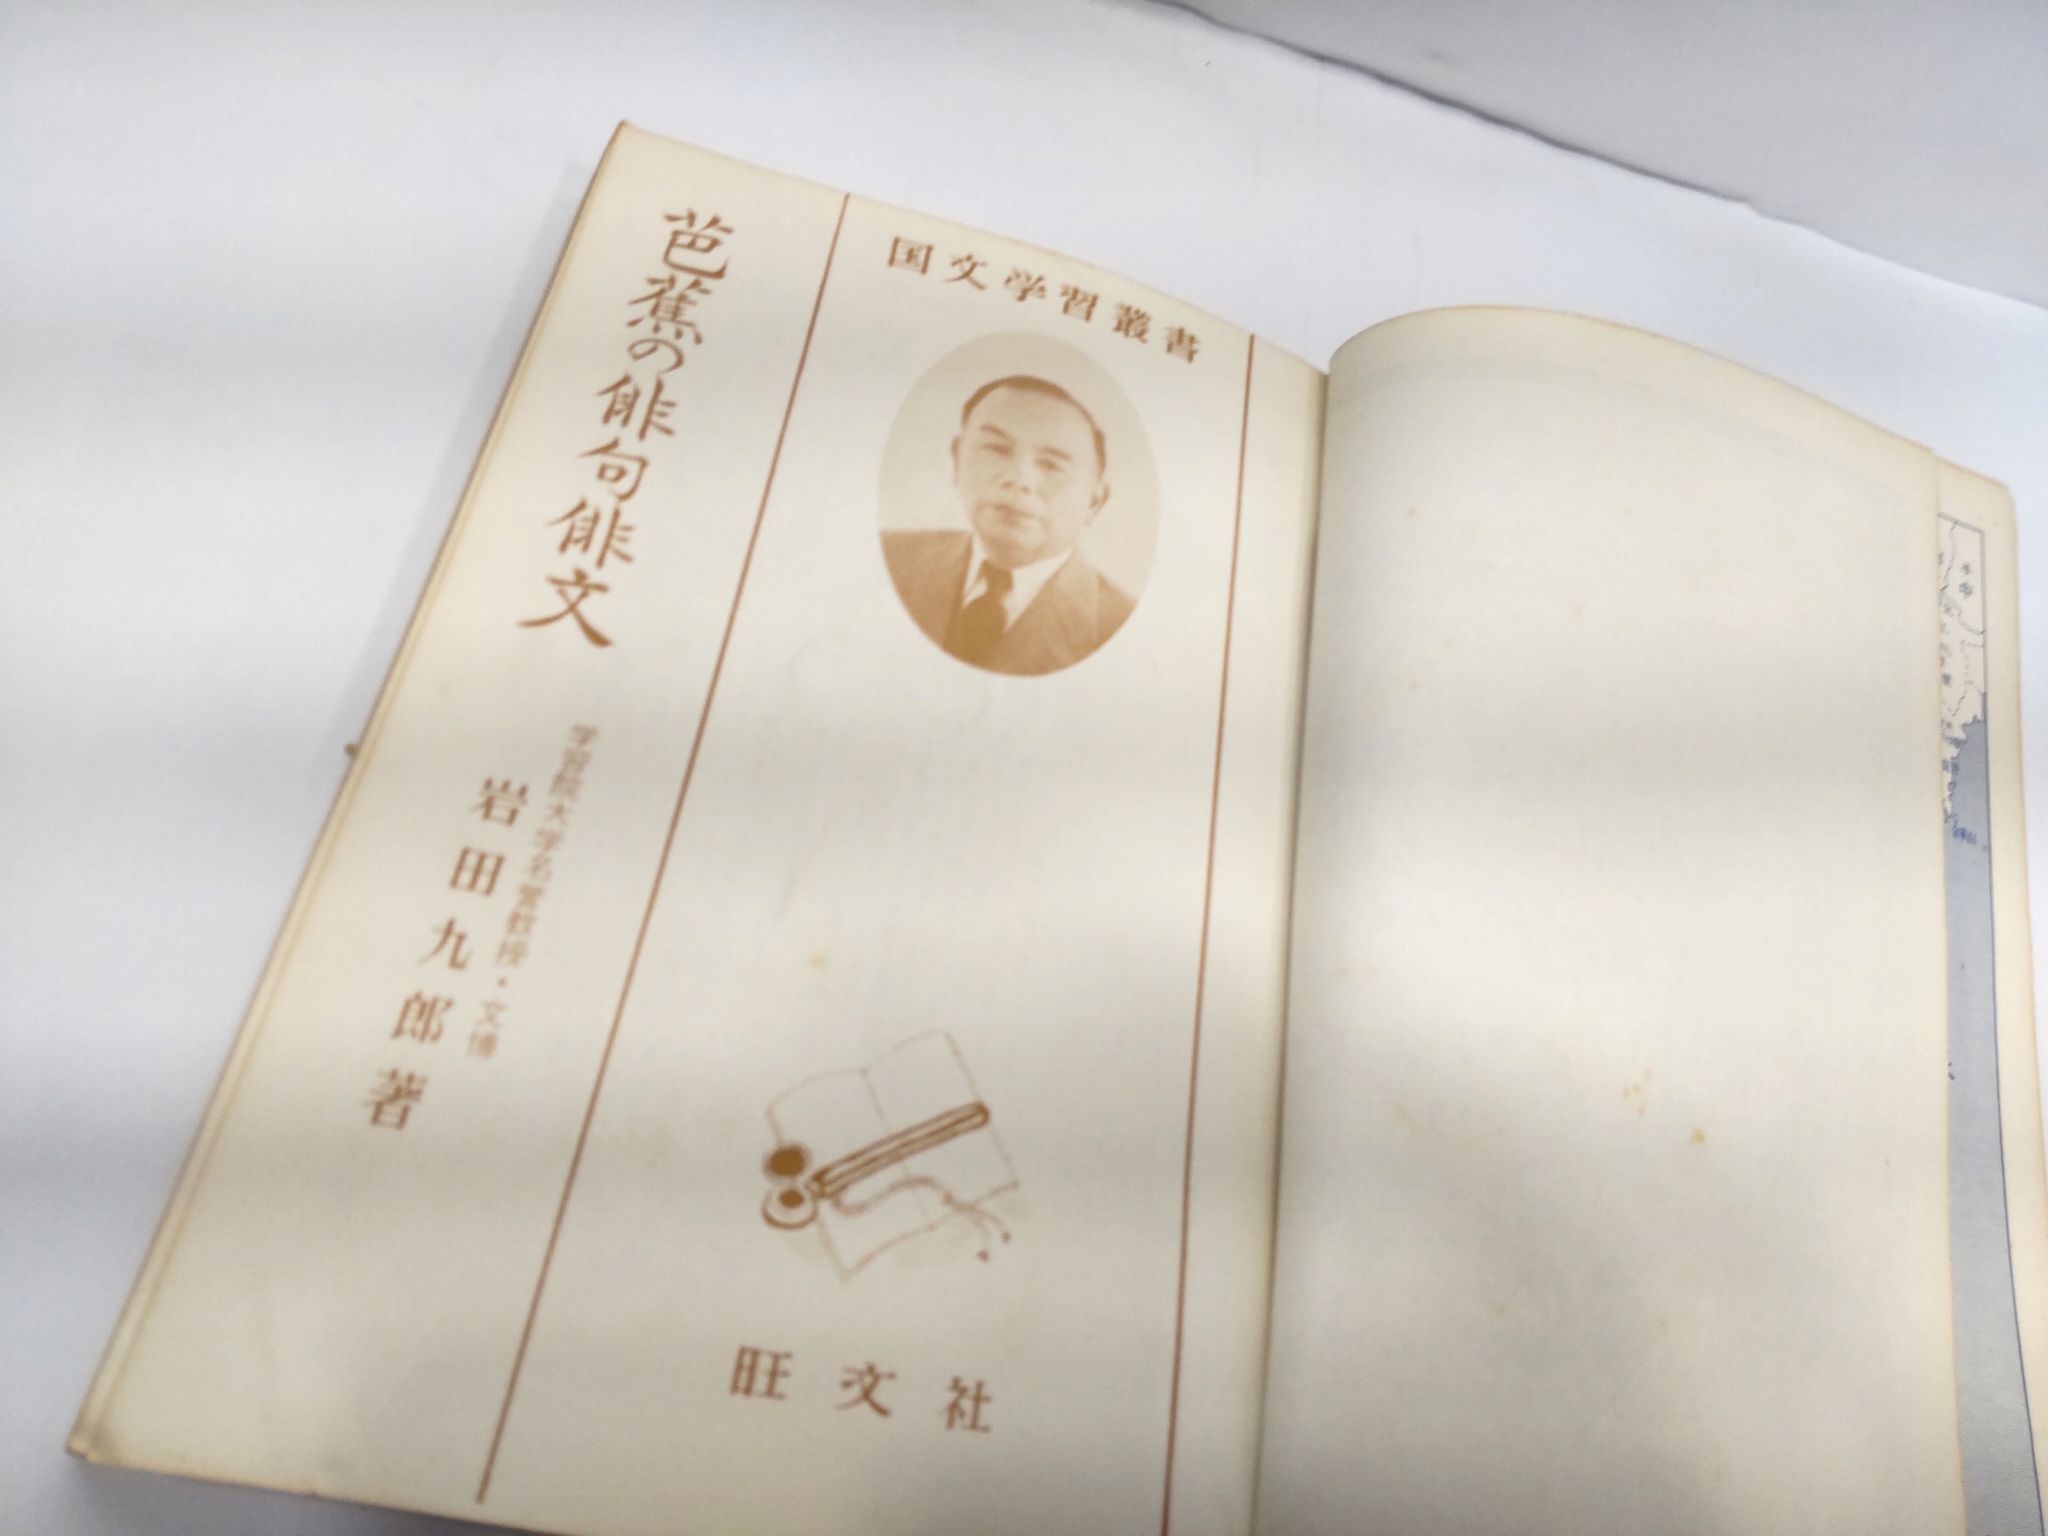 国文学習叢書
芭蕉の俳句俳文
学習院大学名誉教授・文博
岩田九郎著
旺文社